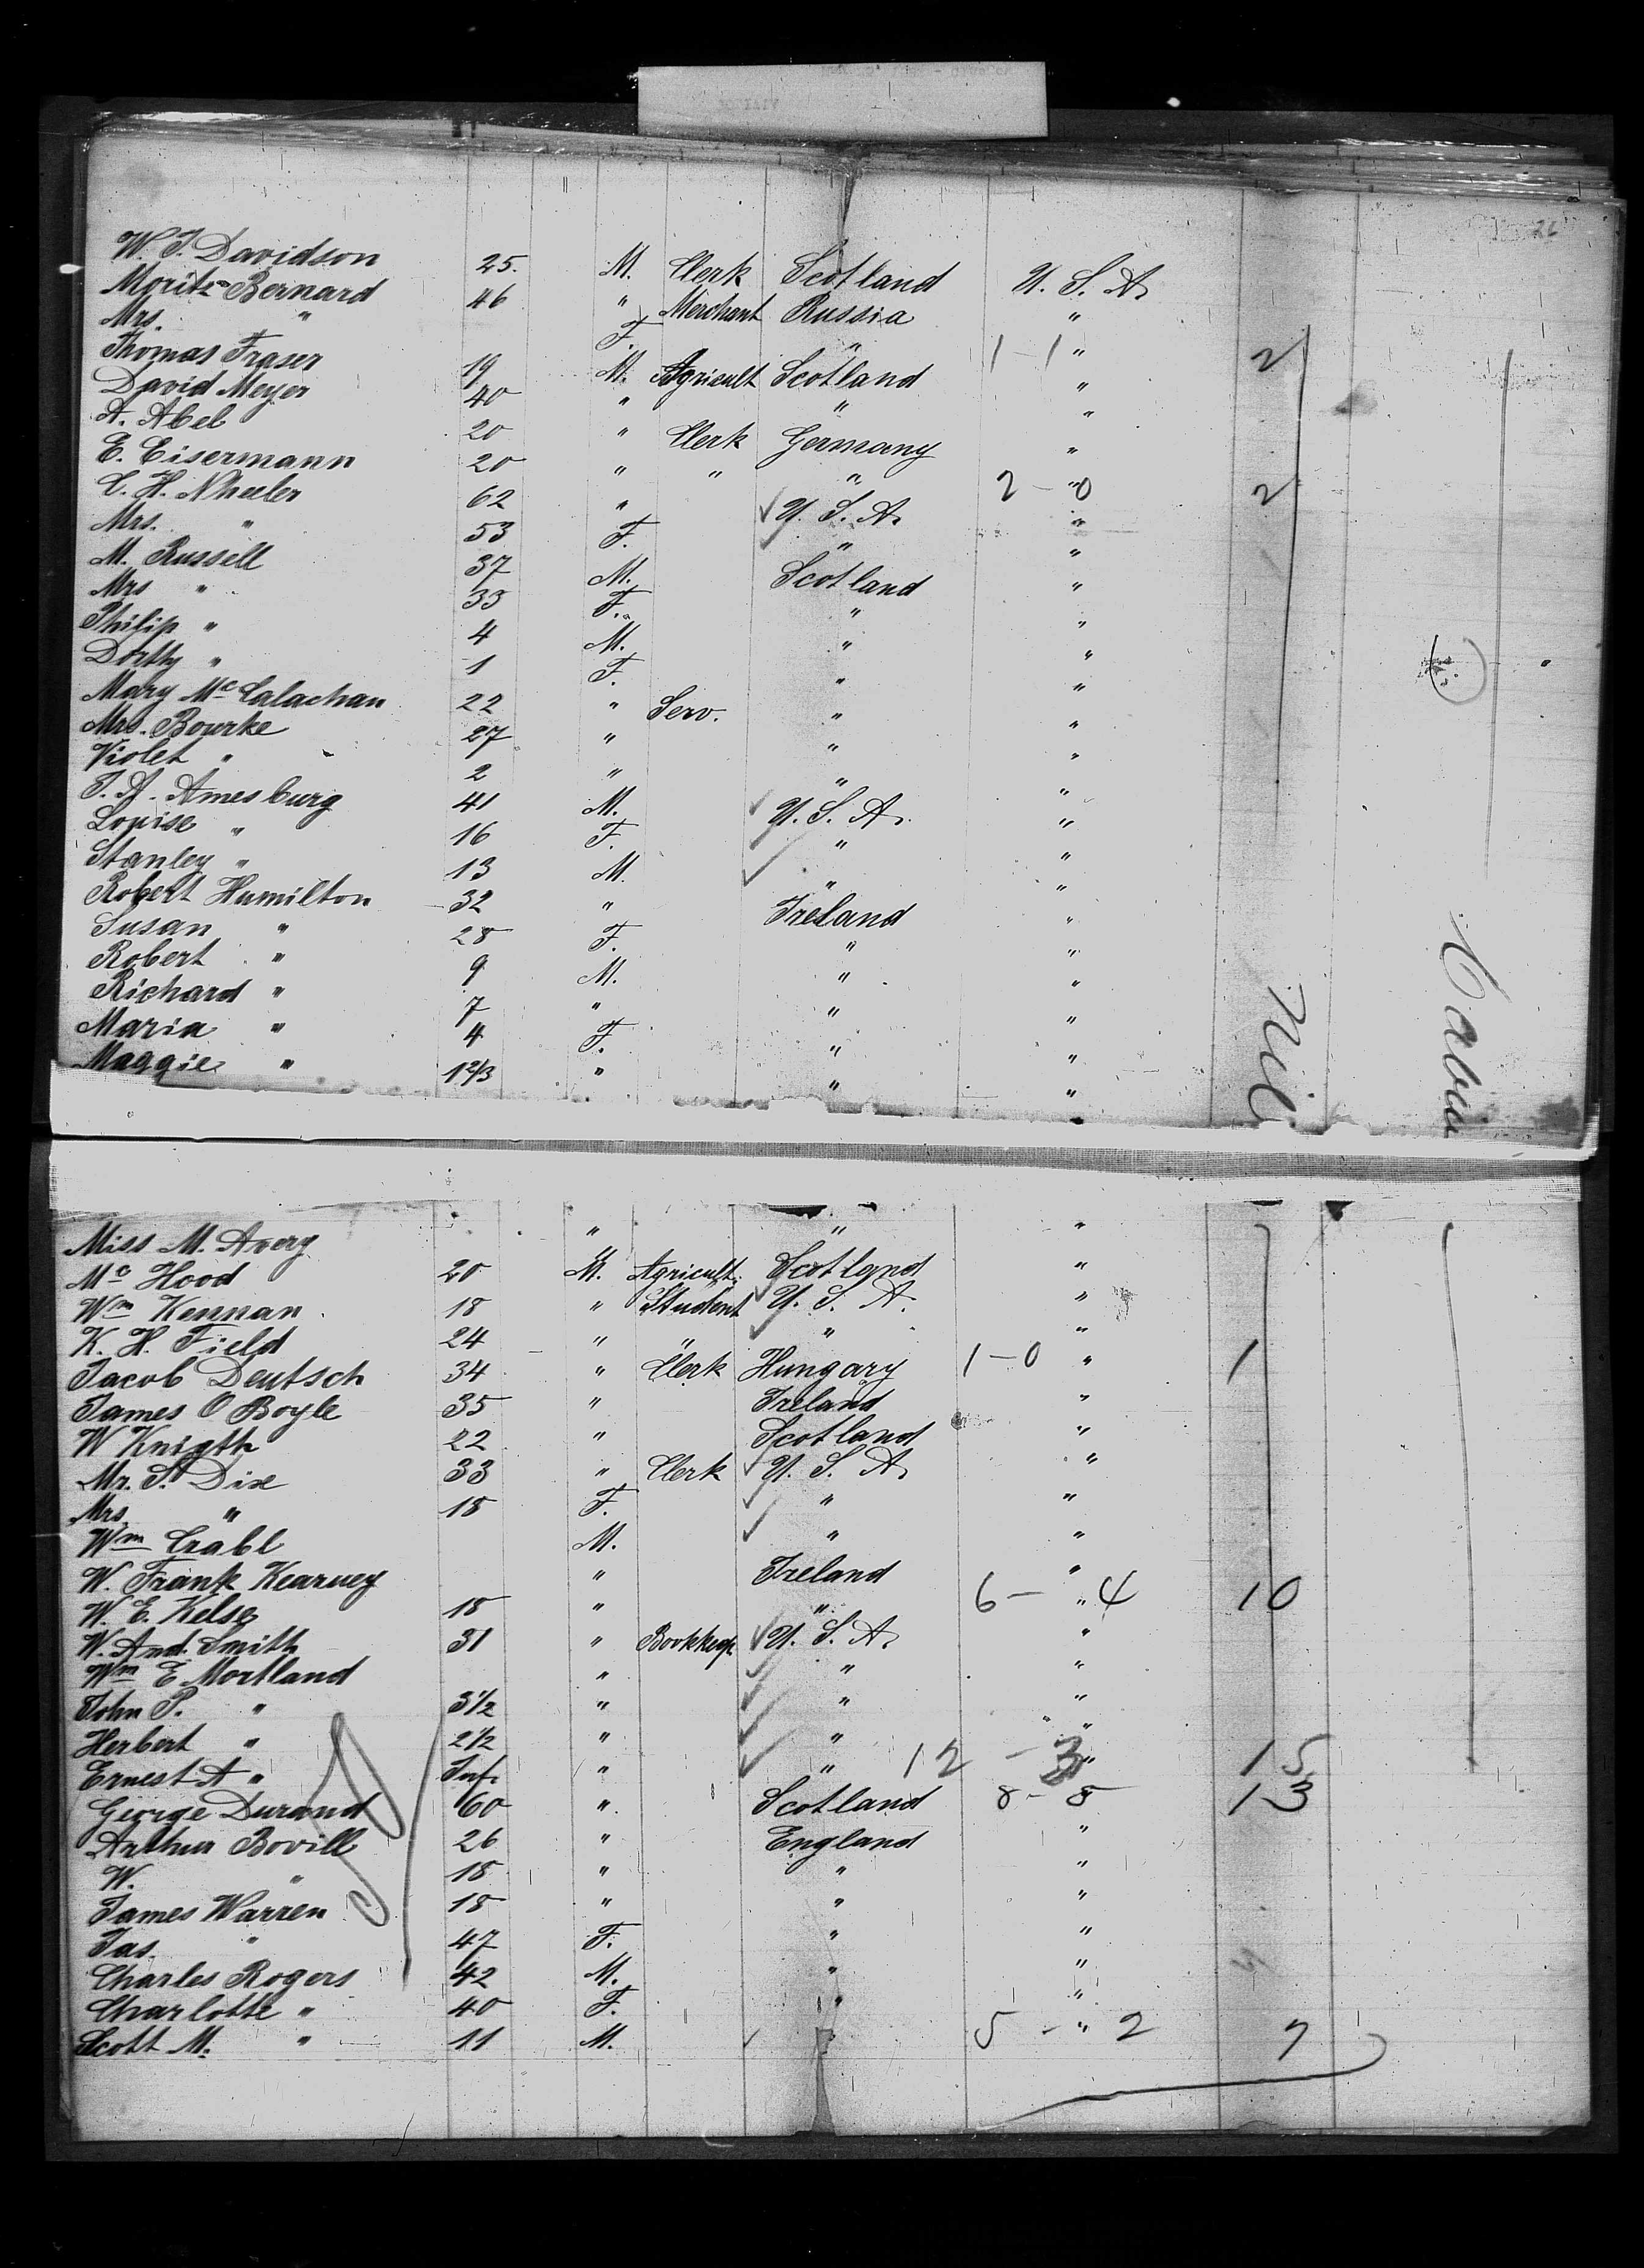 W. J. Davidson 25. M. Clerk Scotland U. S. A.
Moritz Bernard 46 " Merchant Russia "
Mrs. " F. " 1-1 " 2
Thomas Fraser 19 M. Agricult Scotland "
David Meyer 40 " " "
A. Abel 20 " Clerk Germany "
E. Eisermann 20 " " " 2-0 " 2
C. H. Wheeler 62 " U. S. A. "
Mrs. " 53 F. " "
M. Russell 37 M. Scotland "
Mrs " 33 F. " "
Philip " 4 M. " "
Dortty " 1 F. " "
Mary Mc Calachan 22 " Serv. " "
Mrs. Bourke 27 " " "
Violet " 2 " " "
T. A. Amesburg 41 M. U. S. A. "
Louise " 16 F. " "
Stanley " 13 M. " "
Robert Humilton 32 " Ireland "
Susan " 28 F. " "
Robert " 9 M. " "
Richard " 7 " " "
Maria " 4 F. " "
Maggie " 1 2/3 " " "
Nil
Cabin
Miss M. Avery " " "
Mc Hood 20 M. Agricult. Scotland "
Wm Kennan 18 " Student U. S. A. "
K. H. Field 24 " " " "
Jacob Deutsch 34 " Clerk Hungary 1-0 " 1
James O Boyle 35 " Ireland "
W Knigth 22 " Scotland "
Mr. S. Dix 33 " Clerk U. S. A. "
Mrs. " 18 F. " "
Wm Crabl M. " "
W. Frank Kearney " Ireland "
W. E. Kelso 18 " " 6- " 4 10
W. And. Smith 31 " Bookkeep U. S. A. "
Wm E. Mortland " " "
John P. " 3 1/2 " " "
Herbert " 2 1/2 " " "
Ernest A " Inf. " " 12 - 3 " 15
George Durand 60 " Scotland 8-5 13
Arthur Bovill 26 " England "
W. " 18 " " "
James Warren 18 " " "
Jas. " 47 F. " "
Charles Rogers 42 M. " "
Charlotte " 40 F. " "
Scott M. " 11 M. 5 - " 2 7